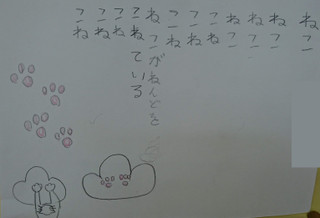 ねこ
ねこ
ねこ
ねこ
こね
こね
こね
ねこがねんどを
こねている
こね
こね
こね